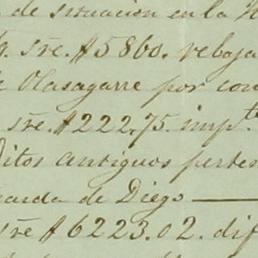 de situacion en la H
sre. $5860. rebaja
Olasagarre por con
sre. $222.75. impt.
ditos antiguos perten
de Diego —
sre $6223.02. dif